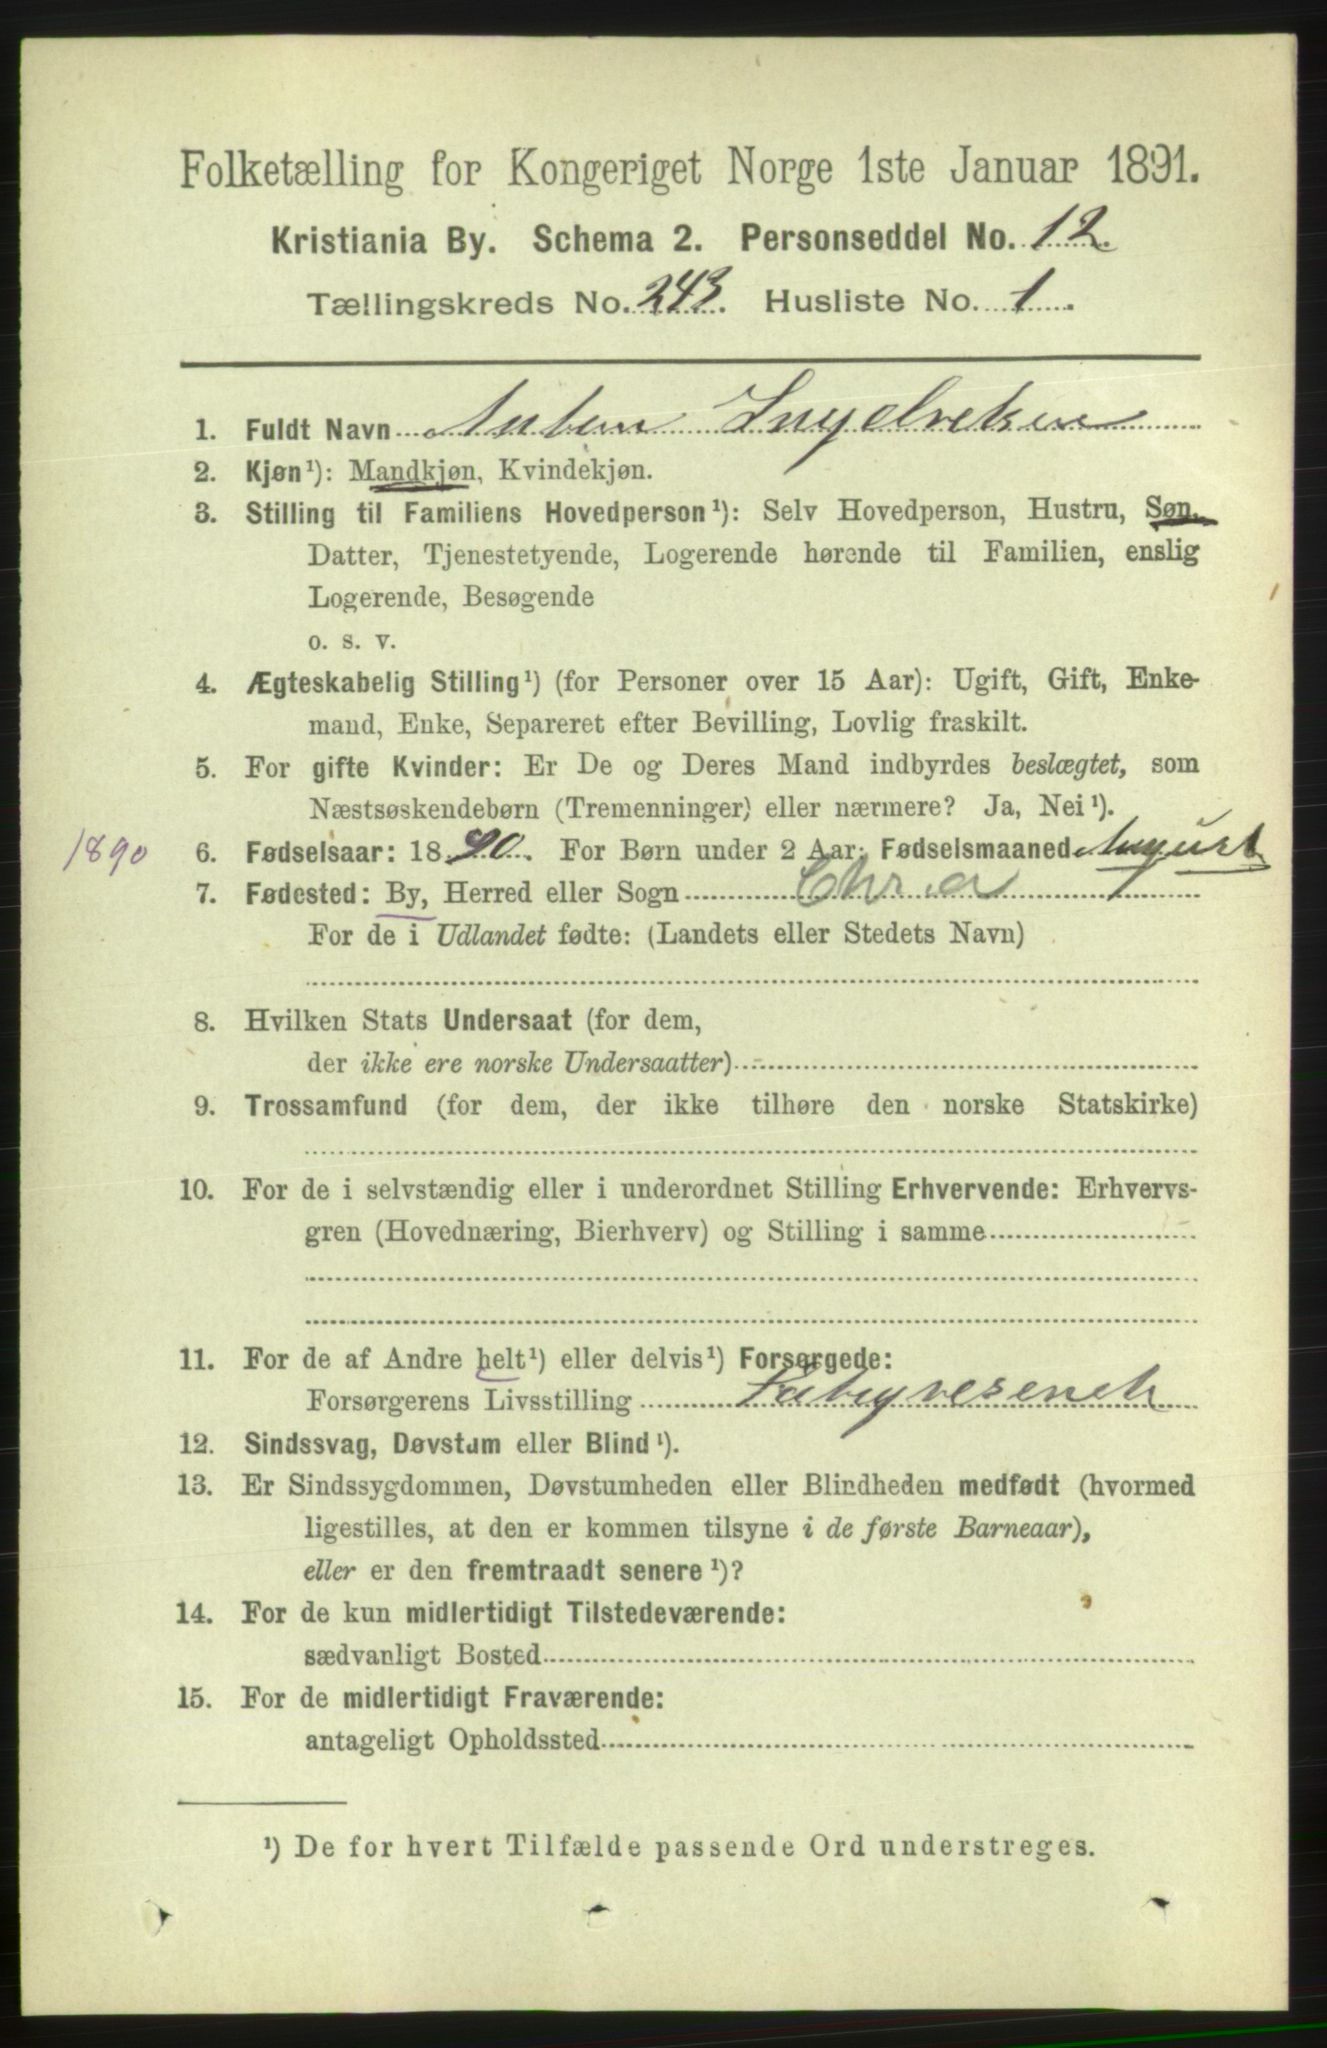 Folketælling for Kongeriget Norge 1ste Januar 1891.
Kristiania By. Schema 2. Personseddel No. 12.
Tællingskreds No. 243. Husliste No. 1.
1. Fuldt Navn
2. Kjøn¹): Mandkjøn, Kvindekjøn.
3. Stilling til Familiens Hovedperson¹): Selv Hovedperson, Hustru, Søn,
Datter, Tjenestetyende, Logerende hørende til Familien, enslig
Logerende, Besøgende
o. s. v.
4. Ægteskabelig Stilling¹) (for Personer over 15 Aar): Ugift, Gift, Enke-
mand, Enke, Separeret efter Bevilling, Lovlig fraskilt.
5. For gifte Kvinder: Er De og Deres Mand indbyrdes beslægtet, som
Næstsøskendebørn (Tremenninger) eller nærmere? Ja, Nei¹).
1890 6. Fødselsaar: 1890. For Børn under 2 Aar: Fødselsmaaned August
7. Fødested: By, Herred eller Sogn Chr.a
For de i Udlandet fødte: (Landets eller Stedets Navn)
8. Hvilken Stats Undersaat (for dem,
der ikke ere norske Undersaatter)
9. Trossamfund (for dem, der ikke tilhøre den norske Statskirke)
10. For de i selvstændig eller i underordnet Stilling Erhvervende: Erhvervs-
gren (Hovednæring, Bierhverv) og Stilling i samme
11. For de af Andre helt¹) eller delvis¹) Forsørgede:
Forsørgerens Livsstilling
12. Sindssvag, Døvstum eller Blind¹).
13. Er Sindssygdommen, Døvstumheden eller Blindheden medfødt (hvormed
ligestilles, at den er kommen tilsyne i de første Barneaar),
eller er den fremtraadt senere¹)?
14. For de kun midlertidigt Tilstedeværende:
sædvanligt Bosted
15. For de midlertidigt Fraværende:
antageligt Opholdssted
¹) De for hvert Tilfælde passende Ord understreges.